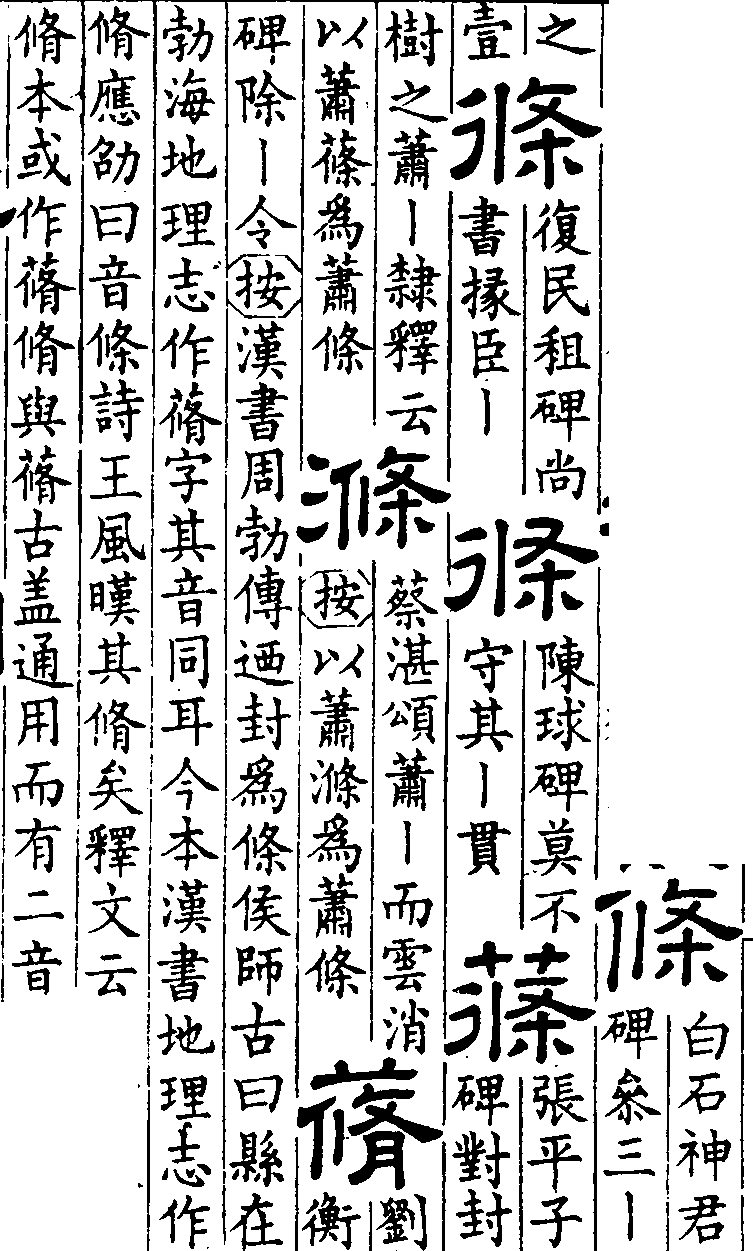 條
白石神君
碑叅三丨
之
壹
條
復民租碑尚
書掾臣丨
條
陳球碑莫不
守其丨貫
蓧
張平子
碑對封
樹之蕭丨隸釋云
以蕭蓧爲蕭條
滌
蔡湛頌蕭丨而雲消
按以蕭滌爲蕭條
蓨
劉
衡
碑除丨令按漢書周勃傳迺封爲條侯師古曰縣在
勃海地理志作蓨字其音同耳今本漢書地理志作
脩應劭曰音條詩王風暵其脩矣釋文云
脩本或作蓨脩與蓨古盖通用而有二音